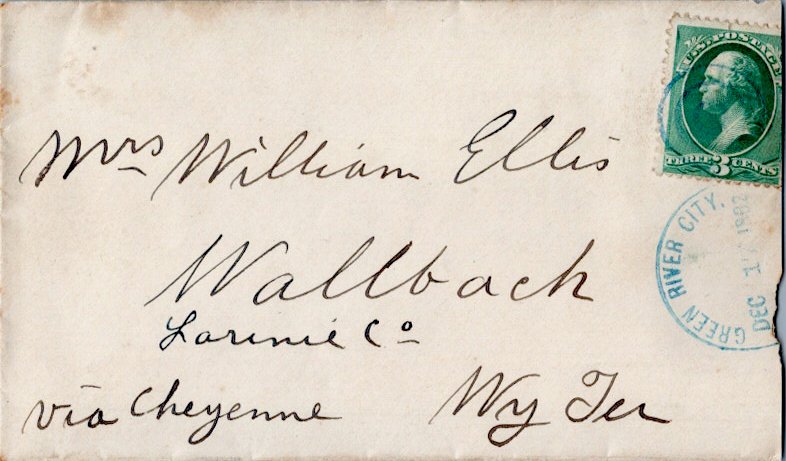 U.S. POSTAGE
THREE 3 CENTS
GREEN RIVER CITY.
DEC 17 1882
Mrs William Ellis
Wallbach
Larimie Co
via Cheyenne Wy Ter